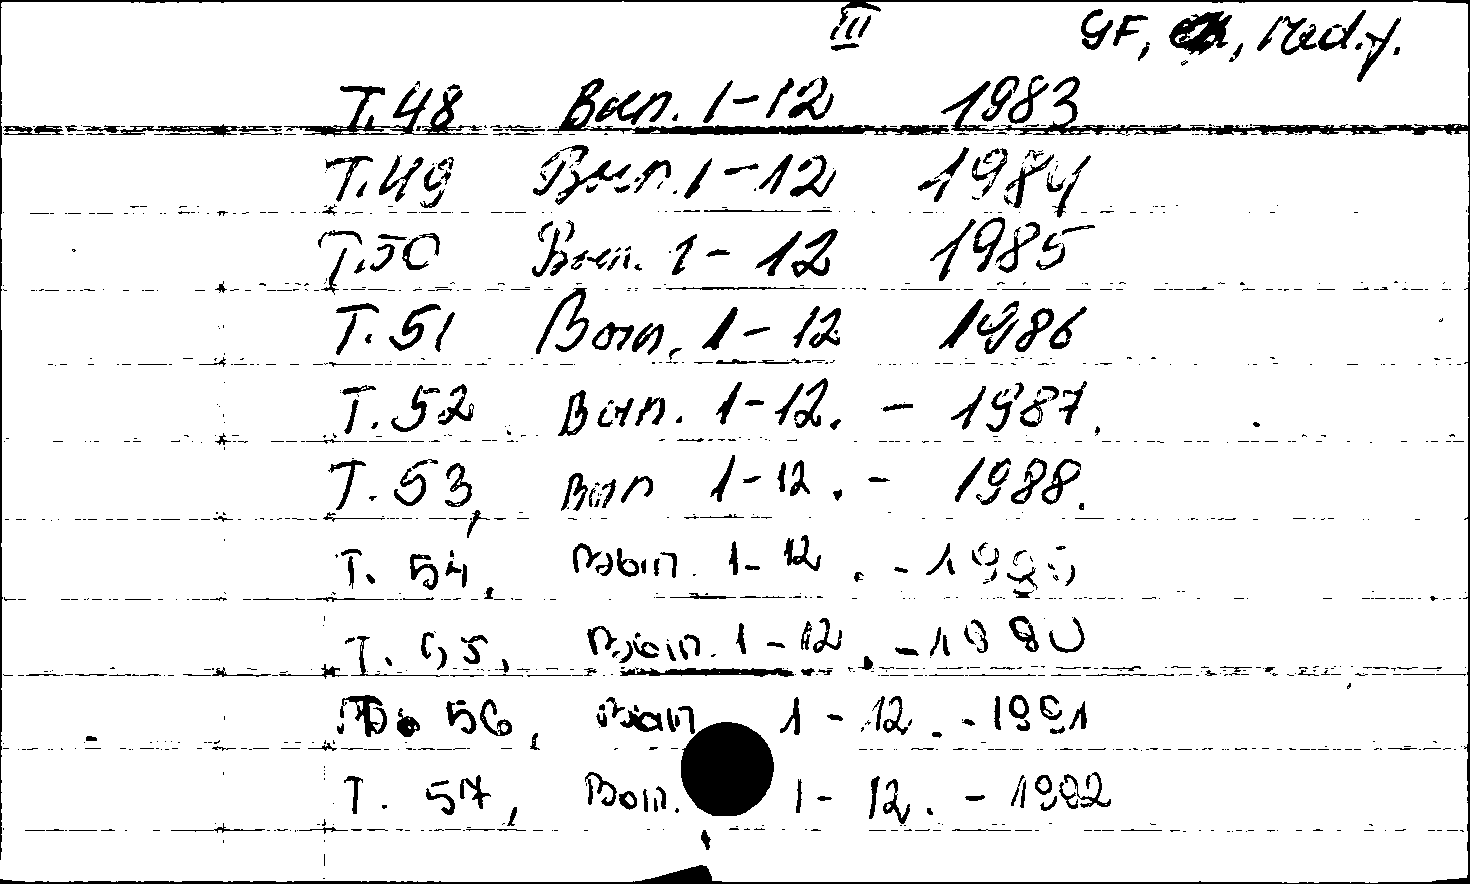 III GF, Med.f.
T. 48 Вып. 1-12 1983
T. 49 Вып. 1-12 1984
T. 50 Вып. 1-12 1985
T. 51 Вып. 1-12 1986
T. 52 Вып. 1-12. - 1987.
T. 53, Вып 1-12. - 1988.
T. 54, Вып. 1-12. - 1989
T. 55, Вып. 1-12. - 1990
T. 56, Вып 1-12. - 1991
T. 57, Вып. 1-12. - 1992